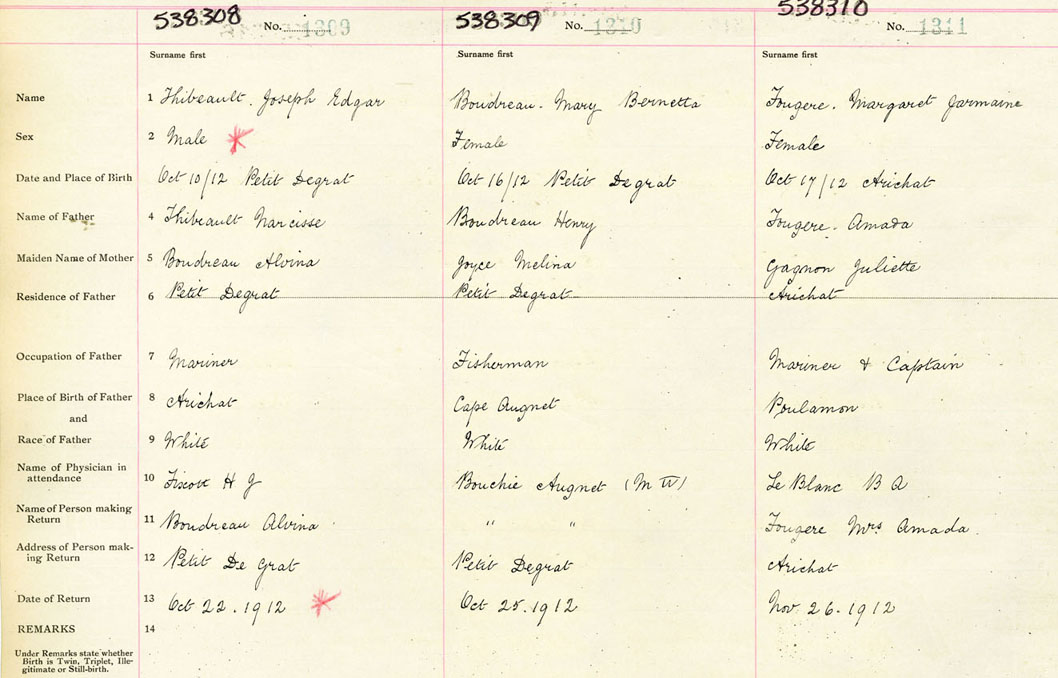 538308 No. 1309 538309 No. 1310 538310 No. 1311
Surname first Surname first Surname first
Name 1 Thibeault. Joseph Edgar Boudreau. Mary Bernetta Fougere. Margaret Jarmaine
Sex 2 Male Female Female
Date and Place of Birth Oct 10/12 Petit Degrat Oct 16/12 Petit Degrat Oct 17/12 Arichat
Name of Father 4 Thibeault Narcisse Boudreau Henry Fougere. Amada
Maiden Name of Mother 5 Boudreau Alvina Joyce Melina Gagnon Juliette
Residence of Father 6 Petit Degrat Petit Degrat Arichat
Occupation of Father 7 Mariner Fisherman Mariner & Captain
Place of Birth of Father 8 Arichat Cape Augnet Poulamon
and
Race of Father 9 White White White
Name of Physician in
attendance 10 H J Bouchie Augnet (M W) Le Blanc B A
Name of Person making
Return 11 Boudreau Alvina " " Fougere Mrs. Amada
Address of Person mak-
ing Return 12 Petit De Grat Petit Degrat Arichat
Date of Return 13 Oct 22. 1912 Oct 25. 1912 Nov 26. 1912
REMARKS 14
Under Remarks state whether
Birth is Twin, Triplet, Ille-
gitimate or Still-birth.